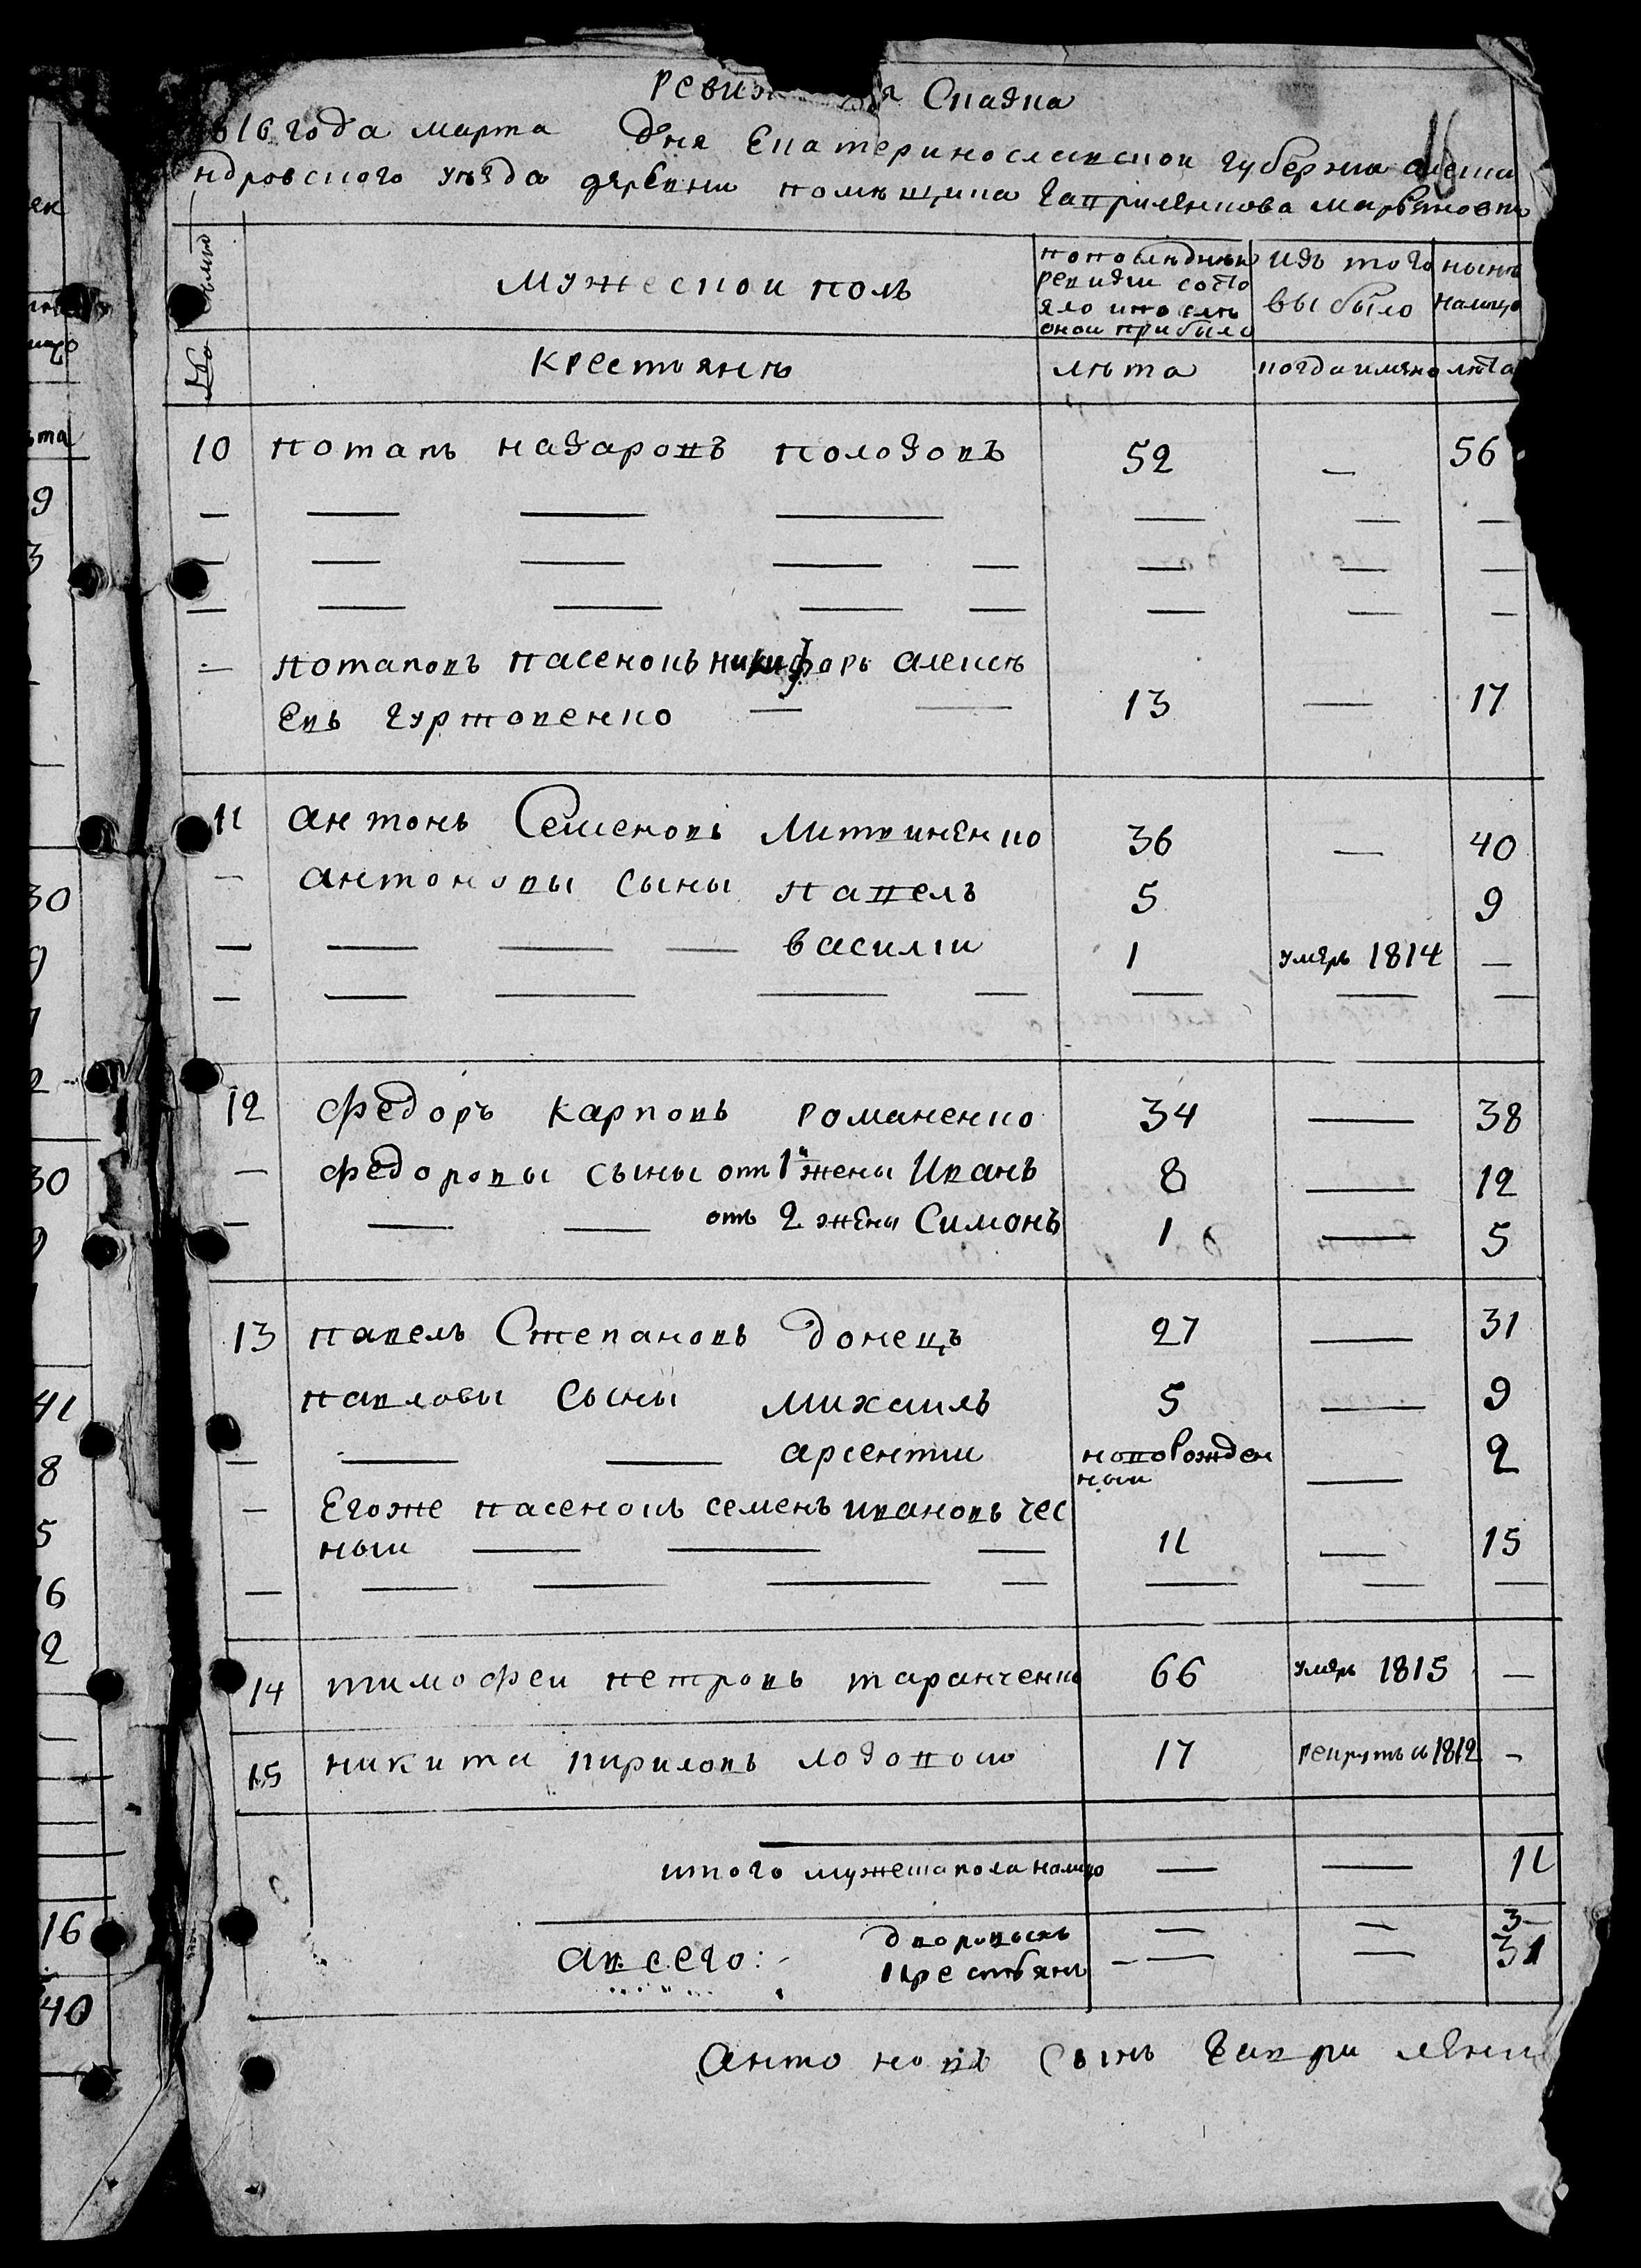 Ревиз я Сказка
816 года марта дня Екатеринославской губернии алекса
ндровского уѣзда деревни помѣщика Гавриленкова Марьяновки
мужеской полъ
попослѣдней
ревизии состо
яло ипослѣ
оной прибыло
изъ того
выбыло
нынѣ
налицо
крестьянѣ
лѣта
когда имяно
лѣта
10 потапъ назаровъ колозовъ 52 — 56
— потаповъ пасенокъ никифоръ алексѣ
евъ гуржовенко — — 13 — 17
11 антонъ Семеновъ Литвиненко 36 — 40
— антоновы сыны павелъ 5 9
— — — — василіи 1 умеръ 1814 —
12 федоръ карповъ романенко 34 — 38
— федоровы сыны отъ 1й жены Иванъ 8 — 12
— — — отъ 2 жены Симонъ 1 — 5
13 павелъ Степановъ донецъ 27 — 31
павловы сыны михаилъ 5 — 9
— — — арсентии новорожден
ныи — 2
— Егоже пасенокъ семенъ ивановъ чес
ныи — — — 11 — 15
14 тимофеи петровъ таранченко 66 умеръ 1815 —
15 никита кириловъ лозовои 17 рекрутъ в 1812 -
итого мужеска пола налицо — — 11
авсего:- дворовыхъ — — 3
крестьянъ — — 31
антоновъ сынъ Гаврилен
16